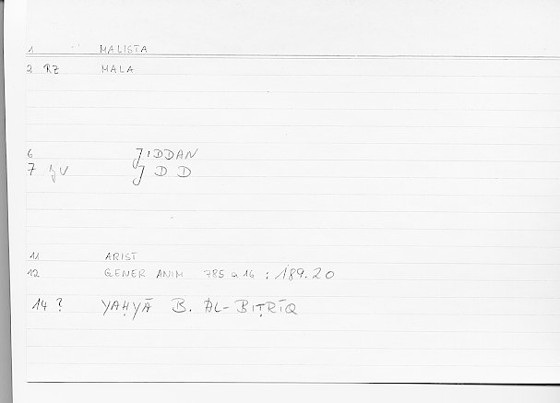 1 MALISTA
2 RZ MALA
6 JIDDAN
7 JDD
11 ARIST
12 GENER ANIM 785 a 16 : 189.20
14 ? YAḤYĀ B. AL-BIṬRĪQ